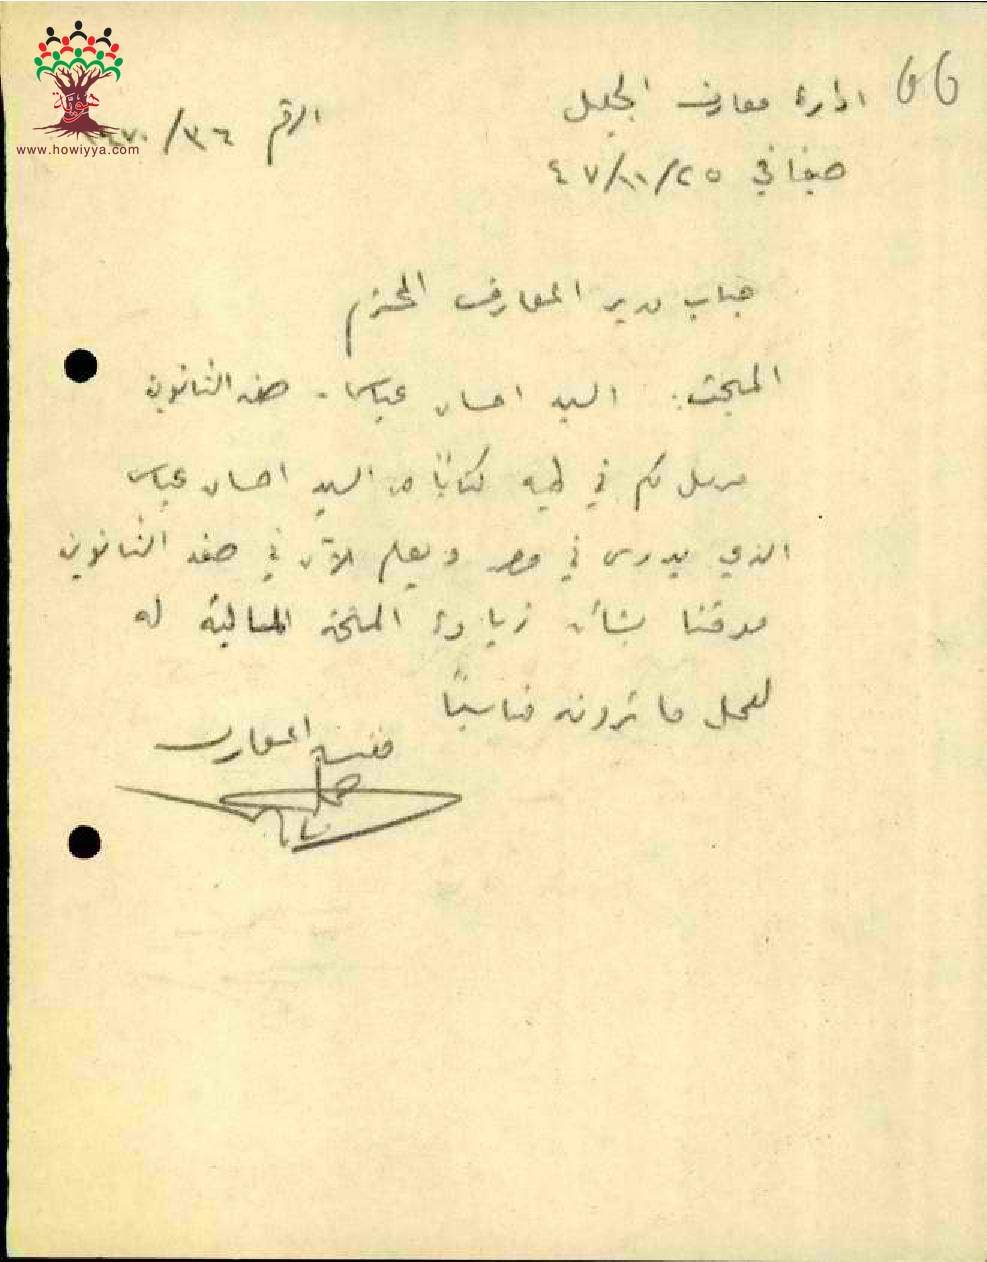 66
ادارة معارف الجليل
الرقم ٣٤/
حيفا في ٢٥/١١/٤٧
هوية
www.howiyya.com
جناب مدير المعارف المحترم
المبحث: السيد احسان عباس - صفد الثانوية
مرسل لكم في طيه كتابًا من السيد احسان عباس
الذي يدرس في مصر ويعلم الآن في صفد الثانوية
موقتا بشأن زيادة المنحة المالية له
لعمل ما ترونه مناسبًا
مفتش المعارف